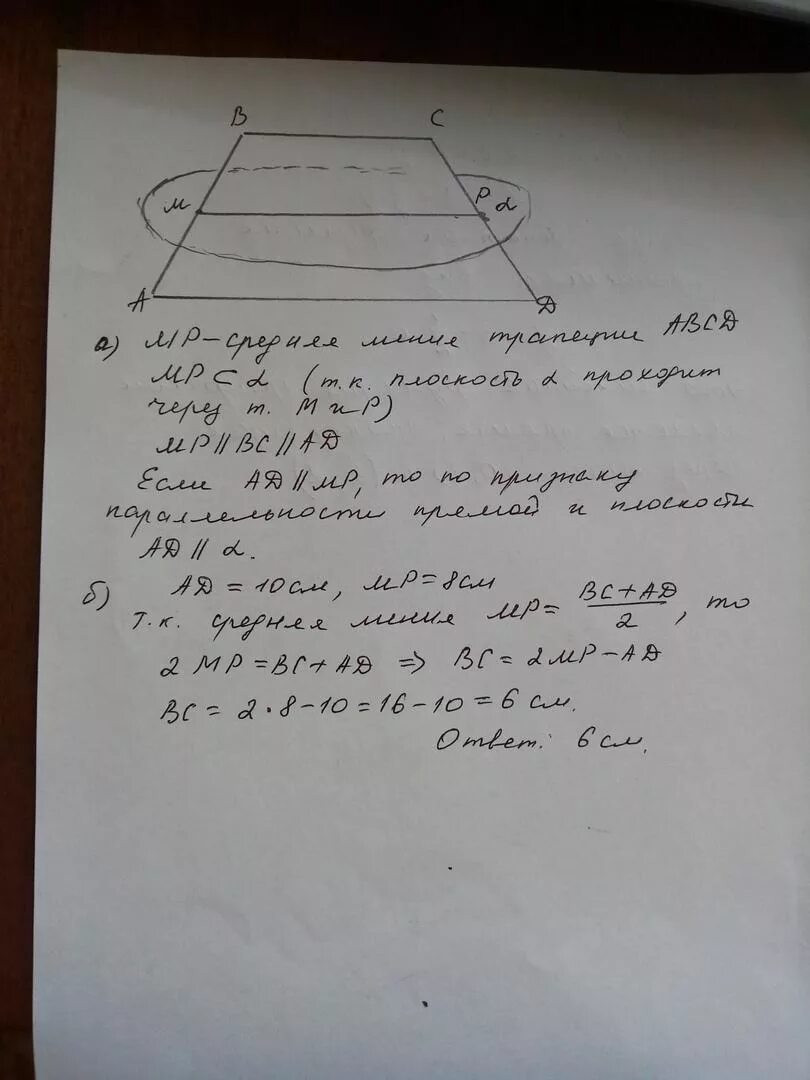 B C
M P α
A D
а) MP – средняя линия трапеции ABCD
MP ⊂ α (т.к. плоскость α проходит
через т. M и P)
MP || BC || AD
Если AD || MP, то по признаку
параллельности прямой и плоскости
AD || α.
б) AD = 10 см, MP = 8 см
т.к. средняя линия MP = (BC + AD)/2, то
2 MP = BC + AD ⇒ BC = 2MP – AD
BC = 2 · 8 – 10 = 16 – 10 = 6 см.
Ответ: 6 см.